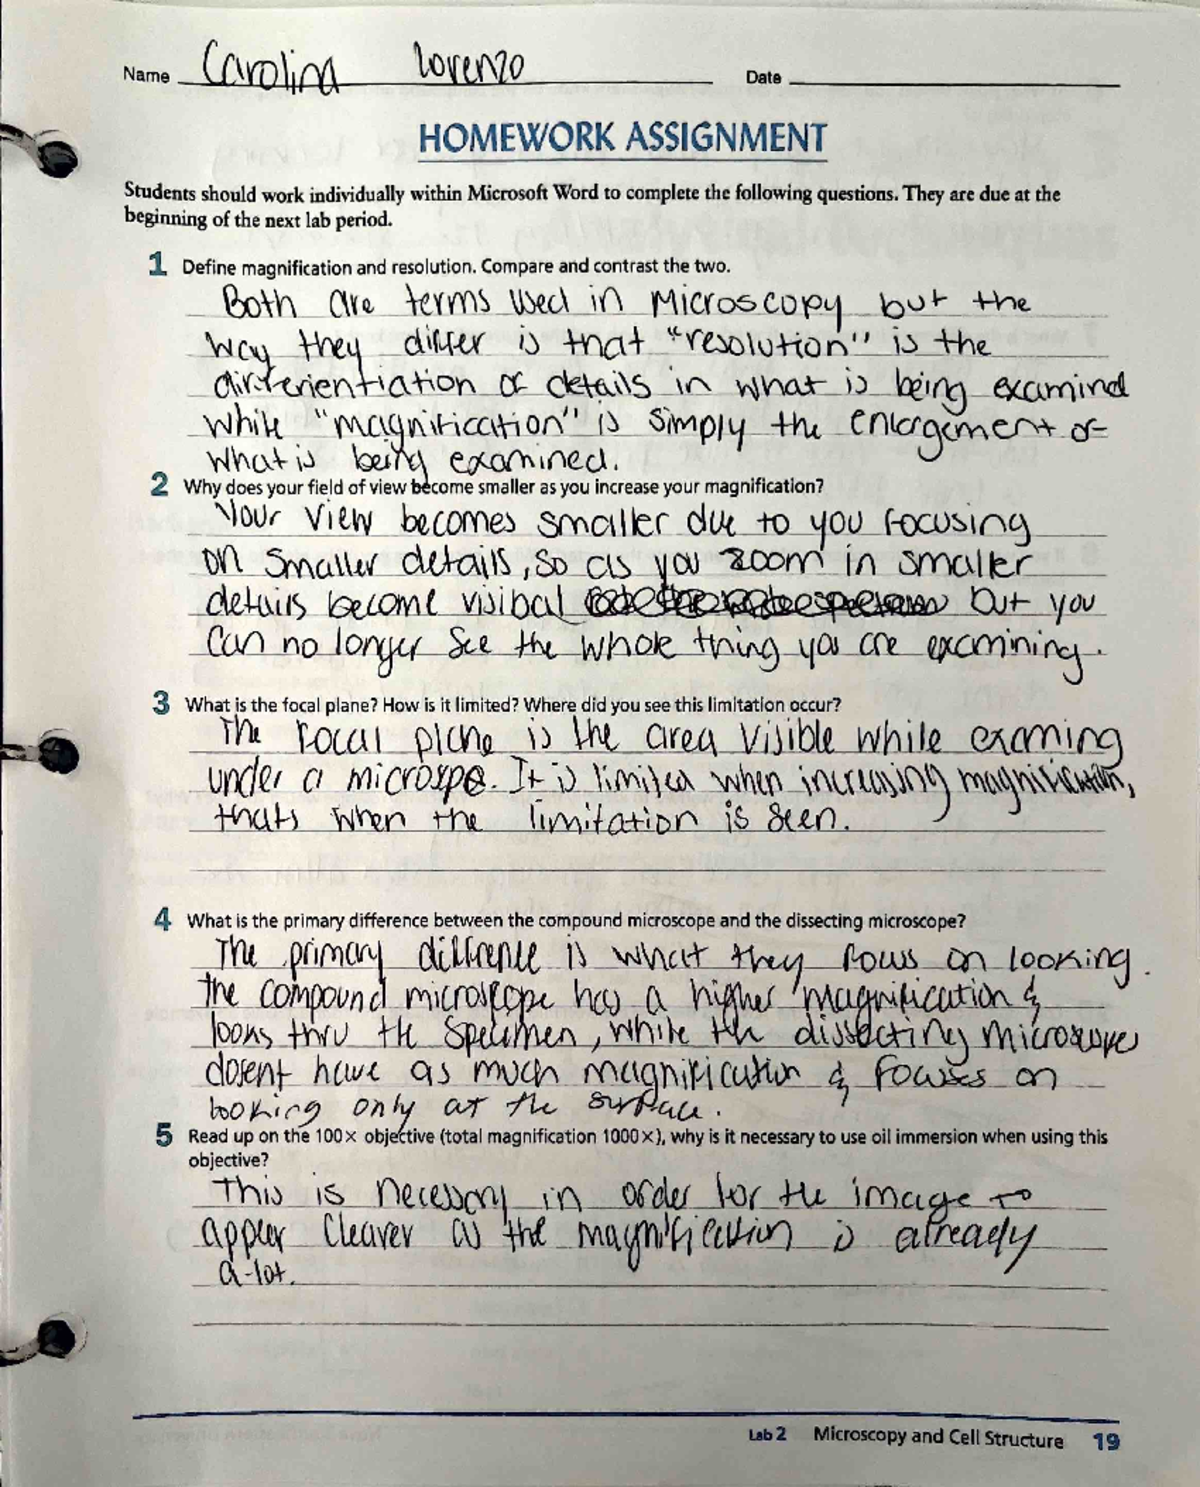 Name Carolina Lorenzo Date
HOMEWORK ASSIGNMENT
Students should work individually within Microsoft Word to complete the following questions. They are due at the
beginning of the next lab period.
1 Define magnification and resolution. Compare and contrast the two.
Both are terms used in Microscopy but the
way they differ is that "resolution" is the
differientiation of details in what is being examined
while "magnification" is simply the enlargement of
what is being examined.
2 Why does your field of view become smaller as you increase your magnification?
Your view becomes smaller due to you focusing
on smaller details, so as you zoom in smaller
details become visibal but you
can no longer see the whole thing you are examining.
3 What is the focal plane? How is it limited? Where did you see this limitation occur?
The focal plane is the area visible while examing
under a microspe. It is limited when increasing magnification,
thats when the limitation is seen.
4 What is the primary difference between the compound microscope and the dissecting microscope?
The primary diffrence is what they fows on looking.
The compound microscope has a higher magnification &
looks thru the specimen, while the dissecting microscope
dosent have as much magnification & focuses on
looking only at the surface.
5 Read up on the 100× objective (total magnification 1000×), why is it necessary to use oil immersion when using this
objective?
This is necessary in order for the image to
apper clearer as the magnification is already
a-lot.
Lab 2 Microscopy and Cell Structure 19